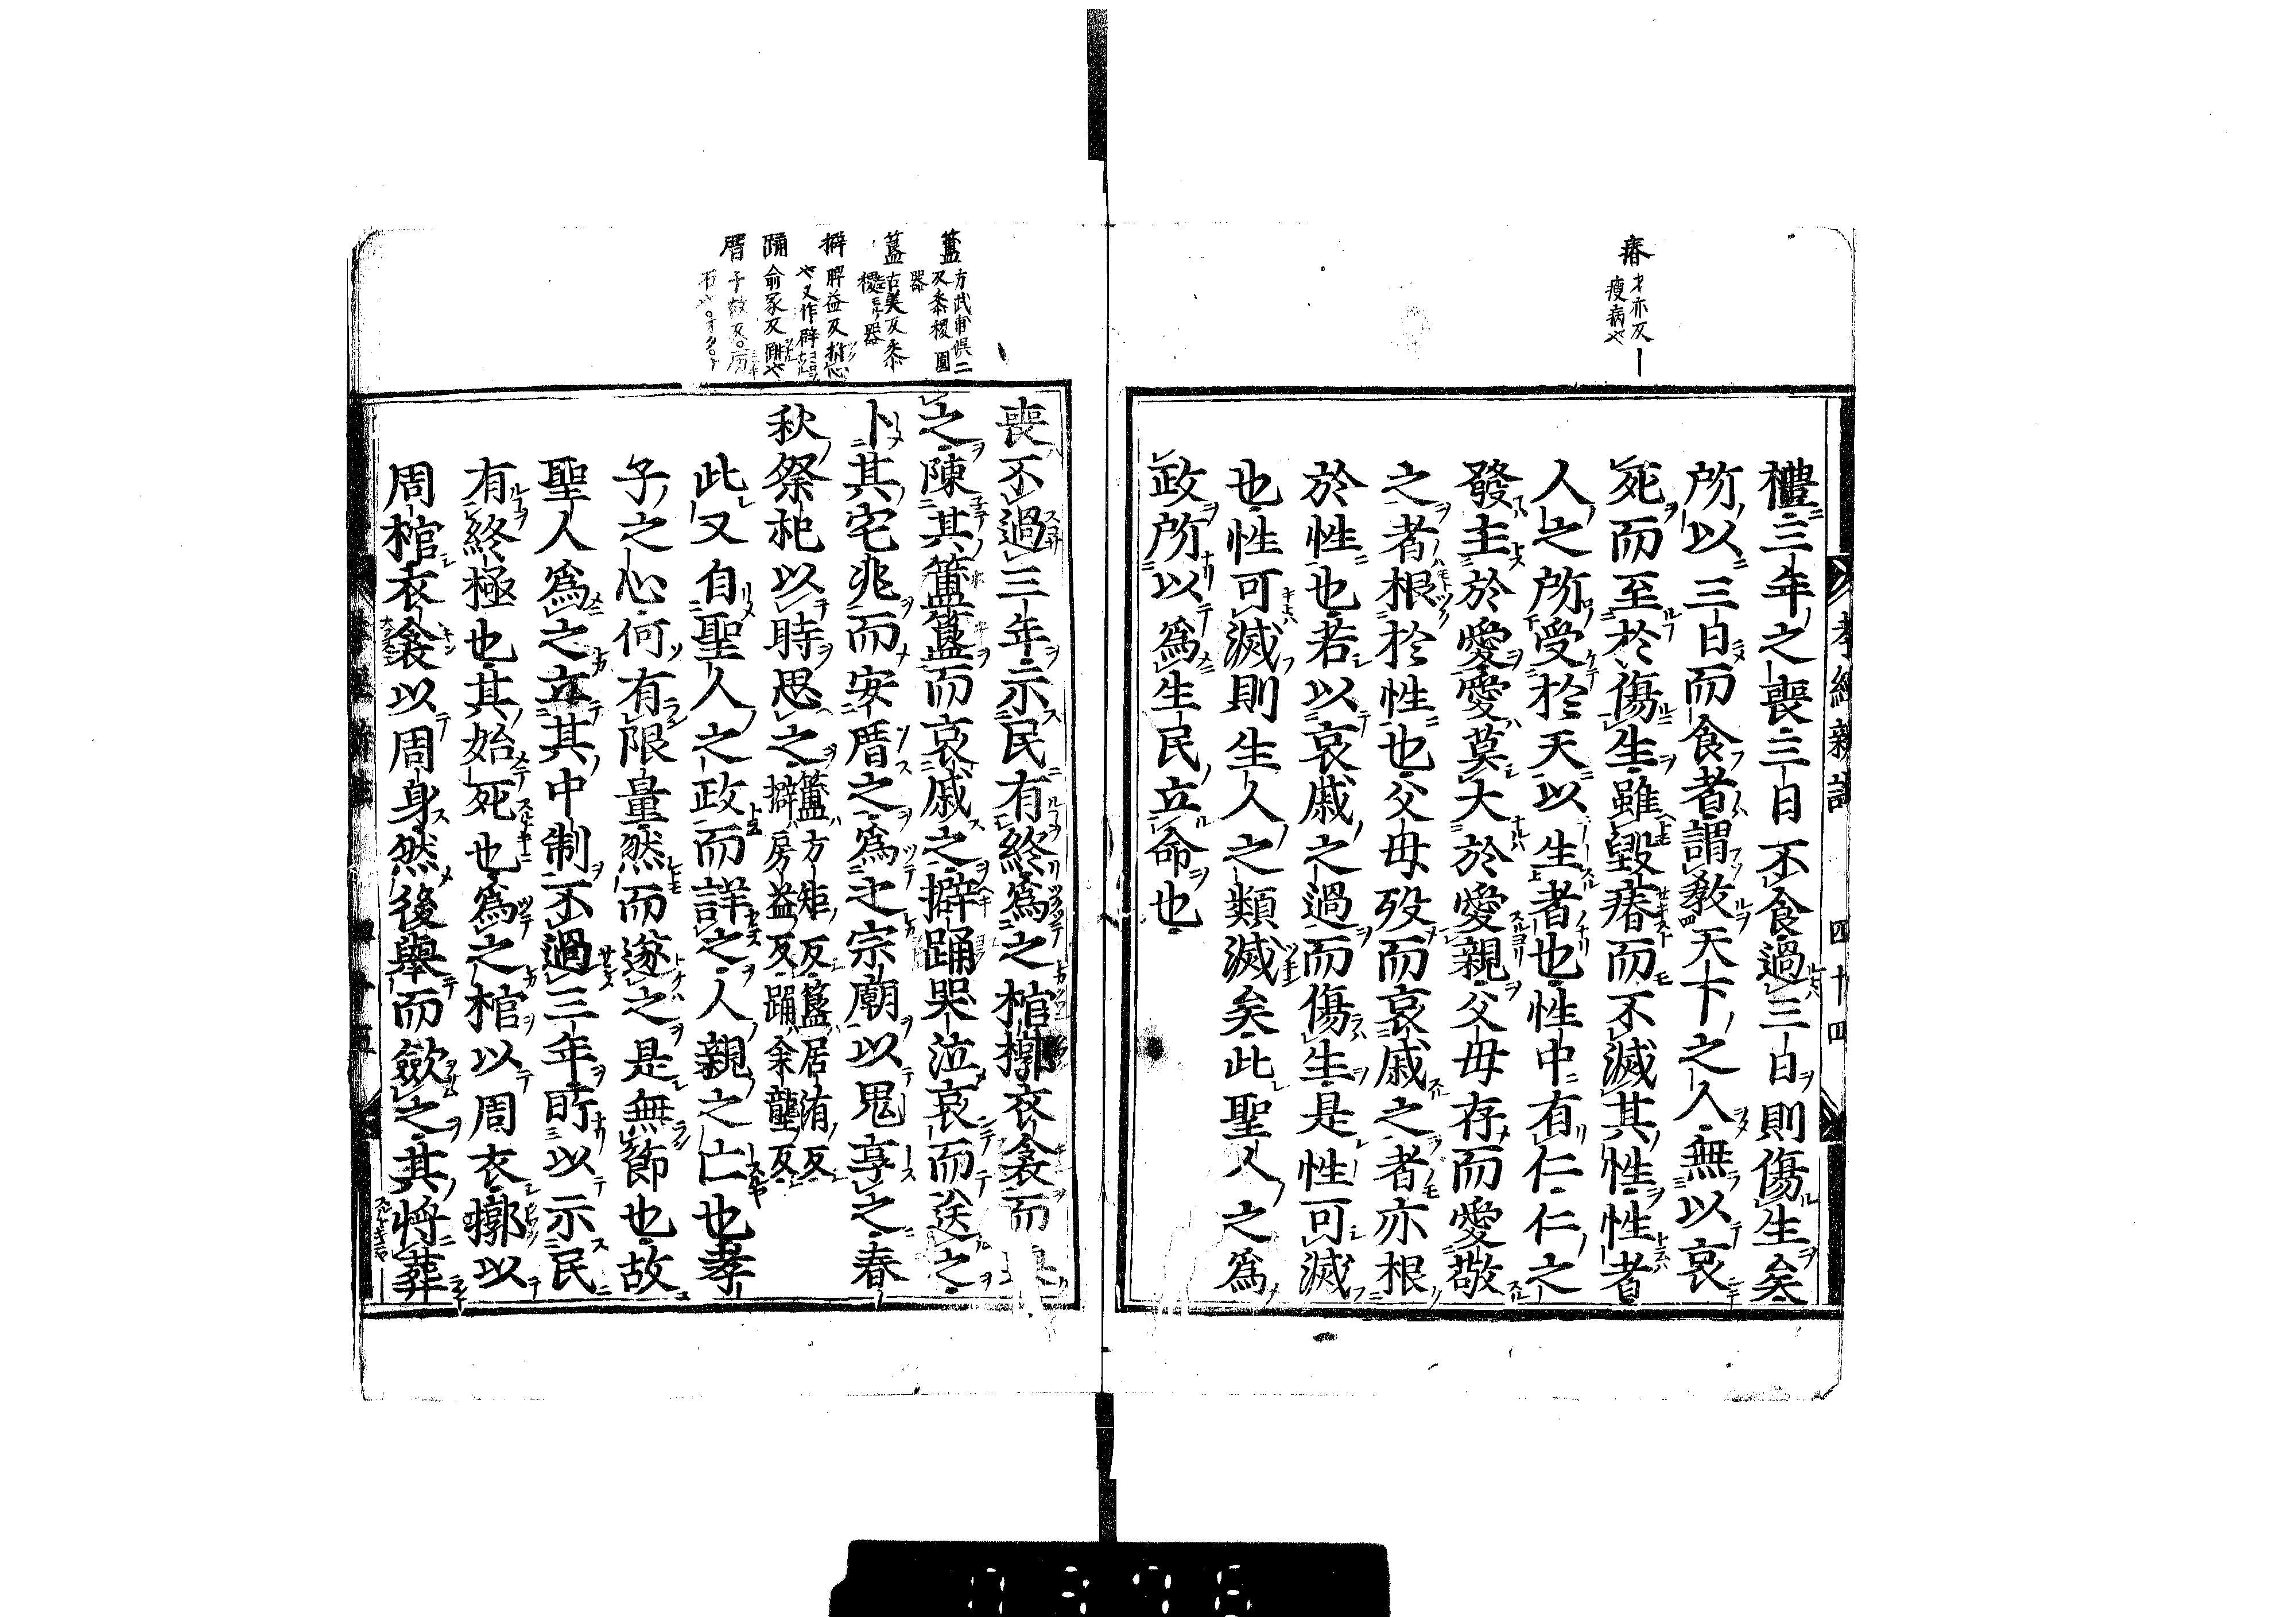 瘠 才亦反
瘦病也
孝經新
四十四
禮三年之喪三日不食過三日則傷生矣
所以三日而食者謂教天下之人無以哀
死而至於傷生雖毀瘠而不滅其性性者
人之所受於天以生者也性中有仁仁之
發主於愛愛莫大於愛親父母存而愛敬
之者根於性也父母歿而哀戚之者亦根
於性也若以哀戚之過而傷生是性可滅
也性可滅則生人之類滅矣此聖人之爲
政所以爲生民立命也
簠 方武甫俱二
反黍稷圓
器
簋 古美反黍
稷器
擗 脾益反拊心
也又作辟
踊 俞冢反跳也
厝 千故反
喪不過三年示民有終爲之棺槨衣衾而
之陳其簠簋而哀戚之擗踊哭泣哀而送之
卜其宅兆而安厝之爲之宗廟以鬼享之春
秋祭祀以時思之
簠方矩反簋居洧反
擗房益反踊余隴反
此又自聖人之政而詳之人親之亡也孝
子之心何有限量然而遂之是無節也故
聖人爲之立其中制不過三年所以示民
有終極也其始死也爲之棺以周衣槨以
周棺衣衾以周身然後舉而歛之其將葬